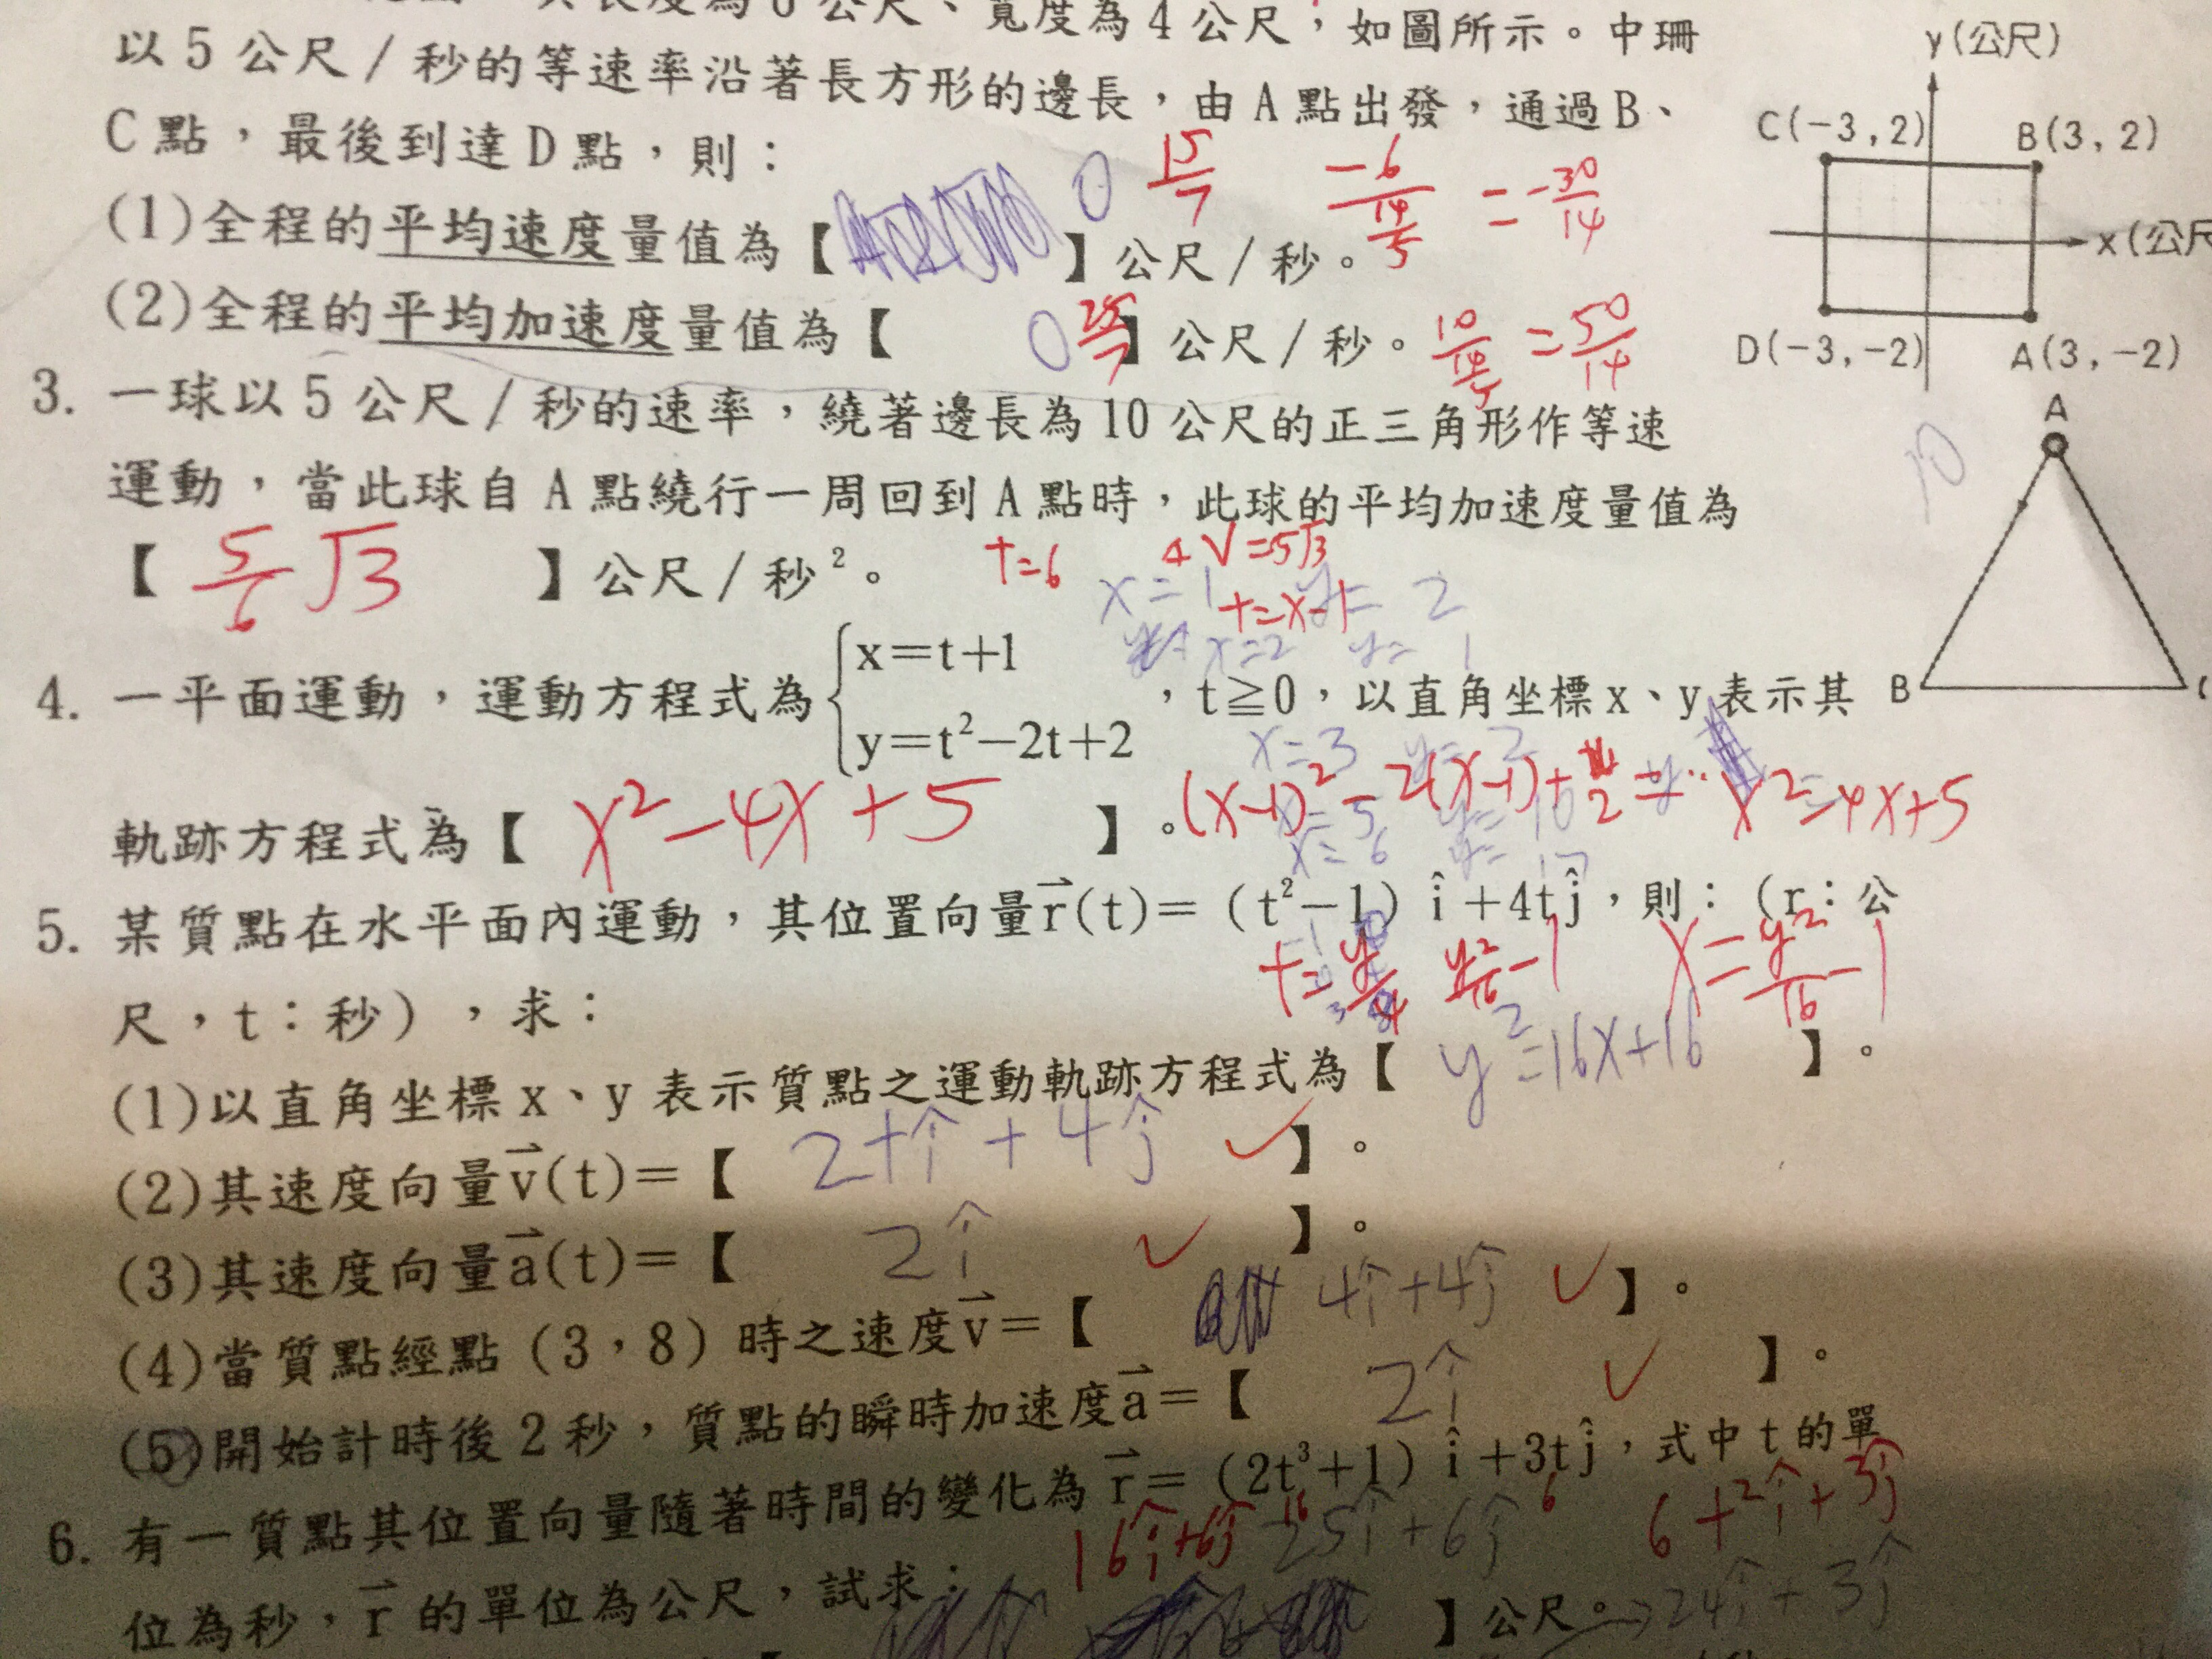 長度為6公尺、寬度為4公尺,如圖所示。中珊
以5公尺/秒的等速率沿著長方形的邊長,由A點出發,通過B、
C點,最後到達D點,則:
0 15/7 -6/(14/5) = -30/14
(1)全程的平均速度量值為【 】公尺/秒。
(2)全程的平均加速度量值為【 0 25/7 】公尺/秒。 10/(14/5) = 50/14
y(公尺)
C(-3,2) B(3,2)
x(公尺
D(-3,-2) A(3,-2)
3. 一球以5公尺/秒的速率,繞著邊長為10公尺的正三角形作等速
運動,當此球自A點繞行一周回到A點時,此球的平均加速度量值為
【 5/6 √3 】公尺/秒²。 t=6 △V=5√3
A
10
B
x=1 y=2
t=x-1
x=2 y=1
4. 一平面運動,運動方程式為{x=t+1
y=t²-2t+2 ,t≧0,以直角坐標x、y表示其
x=3 y=2
軌跡方程式為【 x²-4x+5 】。(x-1)²-2(x-1)+2=y x²-4x+5
x=5 y=10
x=6 y=17
5. 某質點在水平面內運動,其位置向量r⃗(t)=(t²-1)î+4tĵ,則:(r:公
t=y/4 y²/16-1 x=y²/16-1
尺,t:秒),求:
(1)以直角坐標x、y表示質點之運動軌跡方程式為【 y²=16x+16 】。
(2)其速度向量v⃗(t)=【 2tî+4ĵ ✓】。
(3)其速度向量a⃗(t)=【 2î ✓ 】。
(4)當質點經點(3,8)時之速度v⃗=【 4î+4ĵ ✓ 】。
(5)開始計時後2秒,質點的瞬時加速度a⃗=【 2î ✓ 】。
6. 有一質點其位置向量隨著時間的變化為r⃗=(2t³+1)î+3tĵ,式中t的單
16î+6ĵ 16 25î+6ĵ 6 6t²î+3ĵ
位為秒,r⃗的單位為公尺,試求:
】公尺。→24î+3ĵ